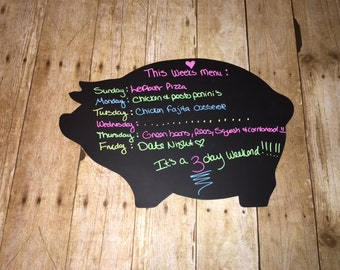 This Weeks Menu :
Sunday : Leftover Pizza
Monday : Chicken & pesto panini's
Tuesday : Chicken Fajita Casserole
Wednesday : . . . . . . . . . . . . . .
Thursday : Green beans, Peas, Squash & cornbread !!
Friday : Date Night
It's a 3 day Weekend!!!!!